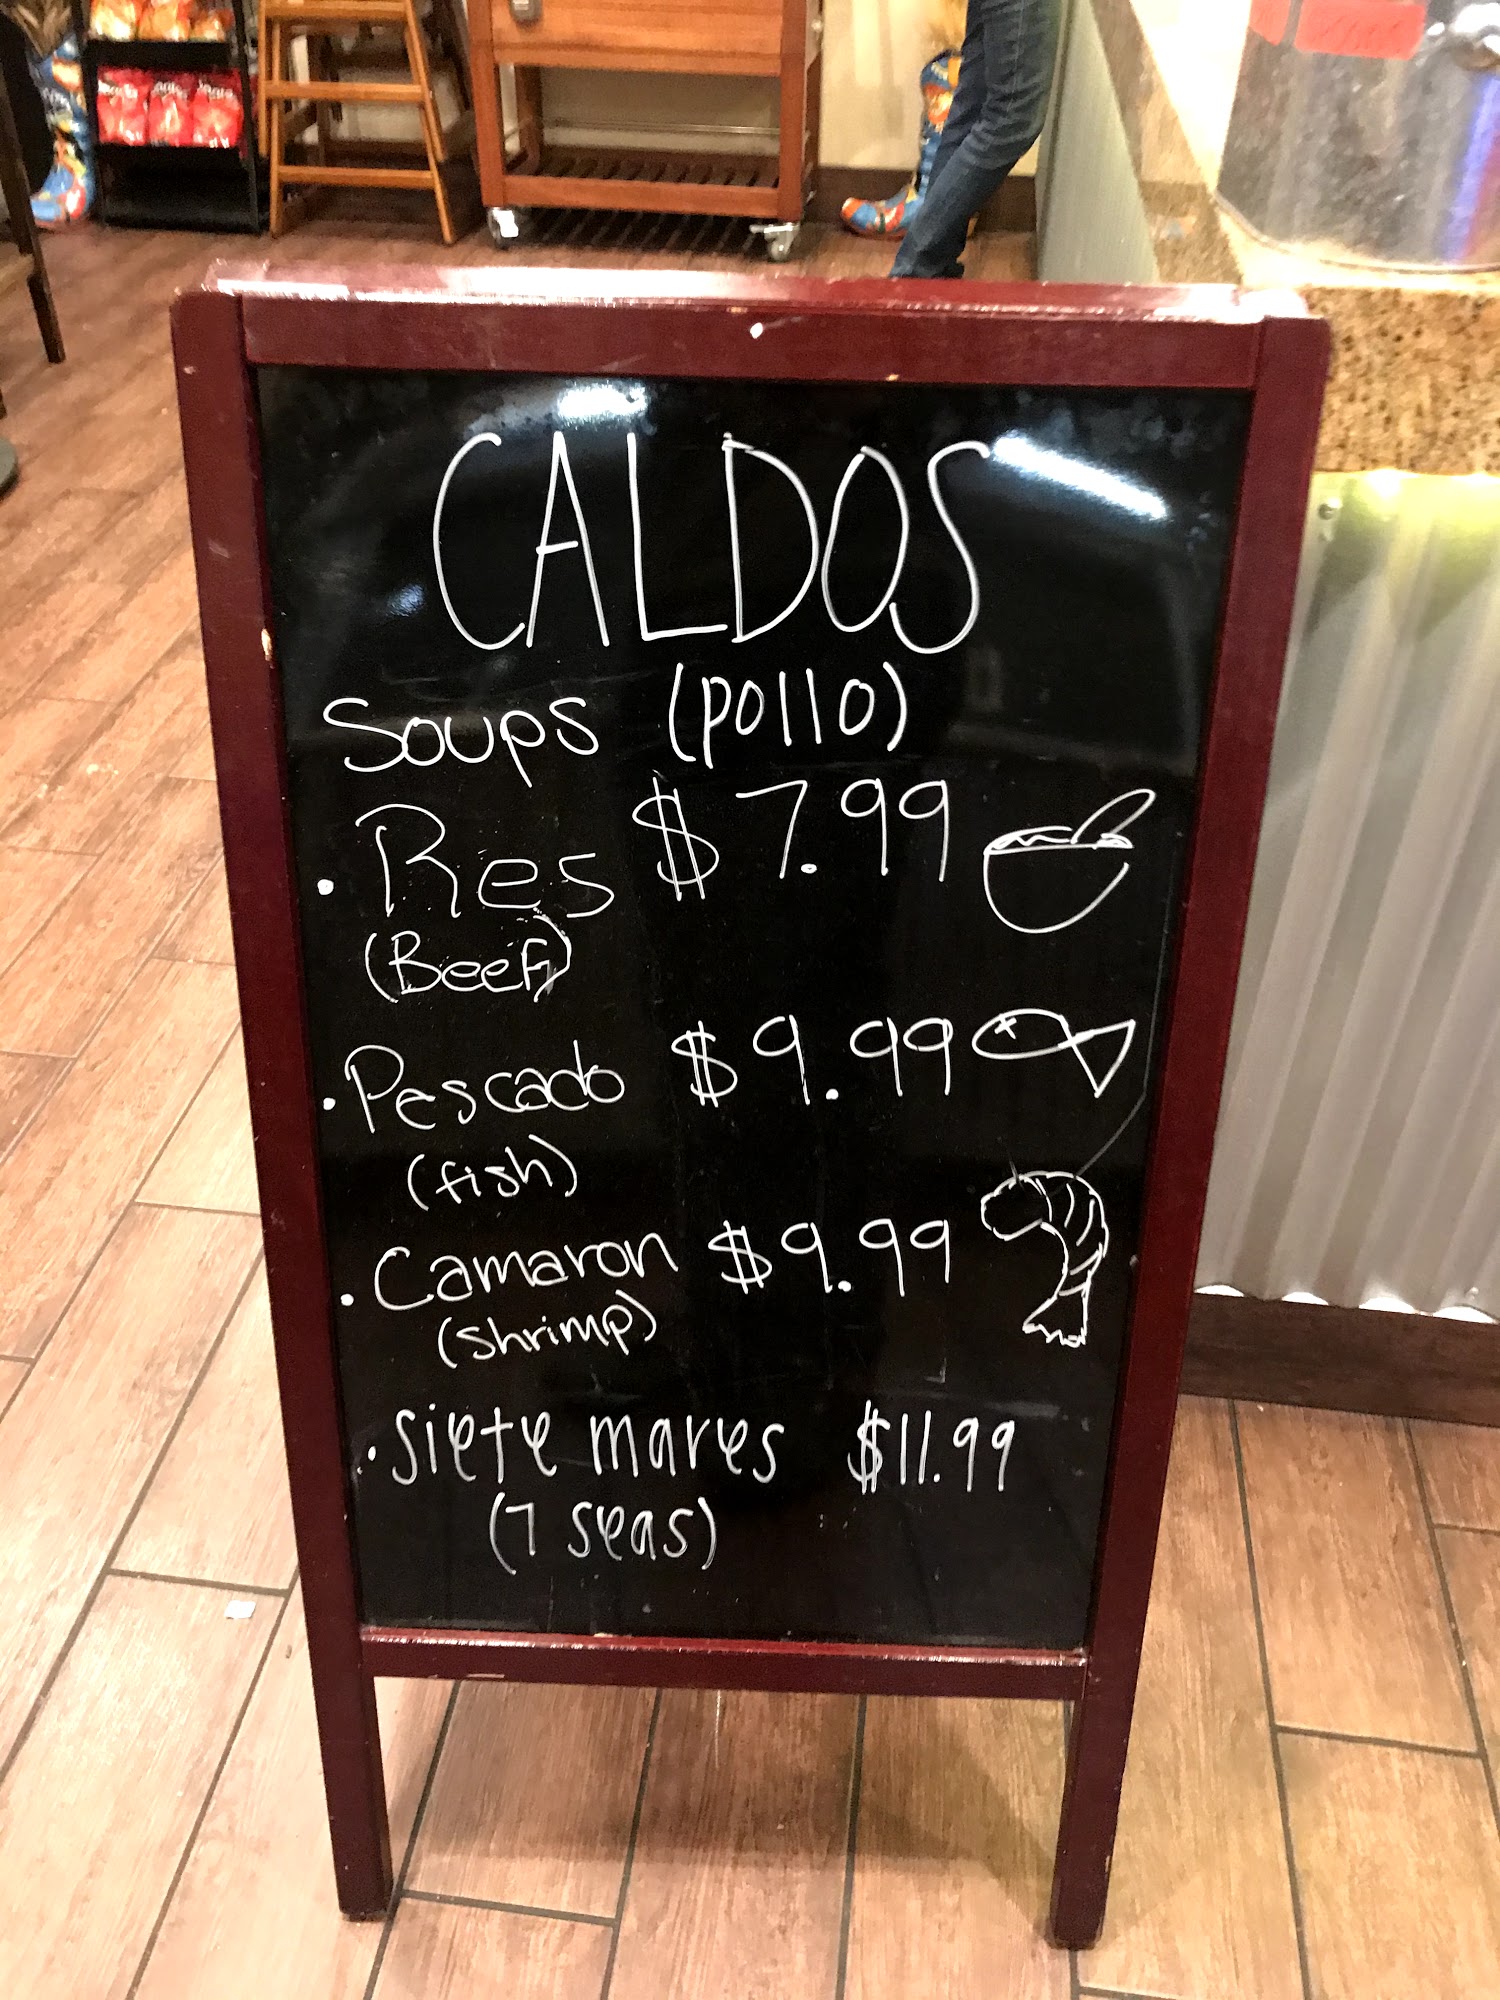 CALDOS
Soups (pollo)
• Res $7.99
(Beef)
• Pescado $9.99
(fish)
• Camaron $9.99
(shrimp)
• siete mares $11.99
(7 seas)